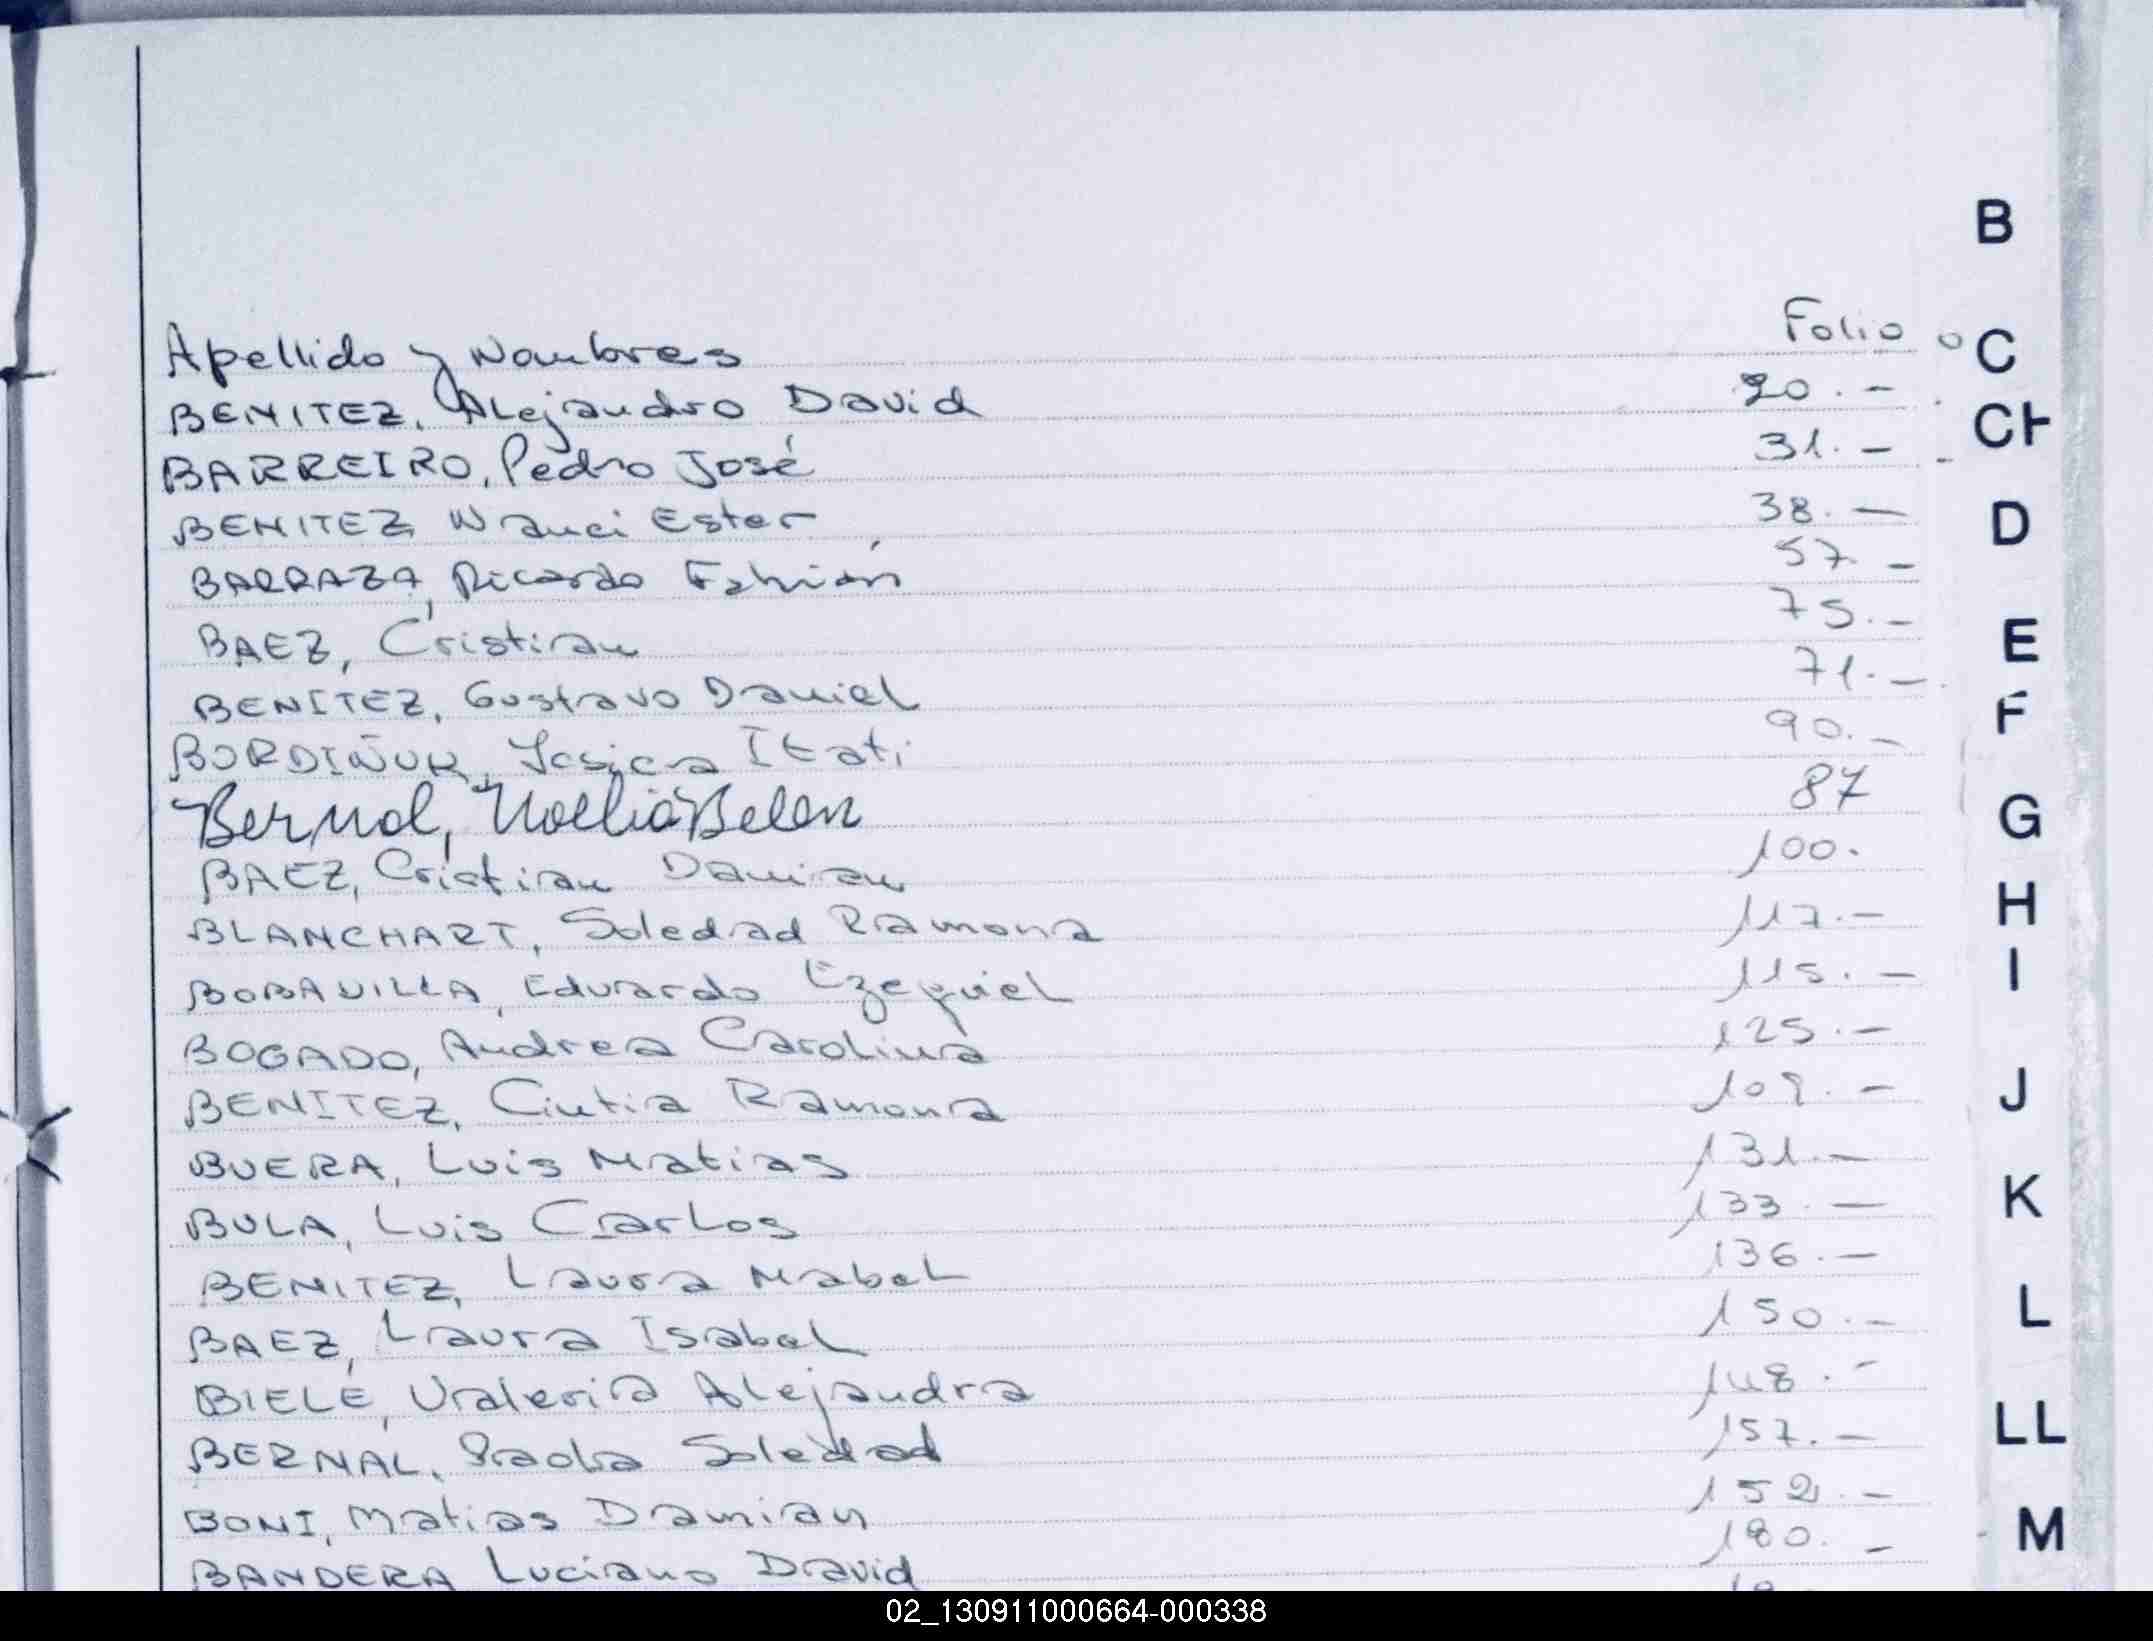 B
Apellido y Nombres Folio C
BENITEZ, Alejandro David 20.- CH
BARREIRO, Pedro José 31.-
BENITEZ Nanci Ester 38.- D
BARRAZA, Ricardo Fabián 57.-
BAEZ, Cristian 75.- E
BENITEZ, Gustavo Daniel 71.- F
BORDIÑUK, Jesica Itati 90.-
Bernal, Noelia Belen 87 G
BAEZ, Cristian Damian 100. H
BLANCHART, Soledad Ramona 117.-
BOBADILLA, Eduardo Ezequiel 115.- I
BOGADO, Andrea Carolina 125.-
BENITEZ, Cintia Ramona 109.- J
BUERA, Luis Matias 131.-
BULA, Luis Carlos 133.- K
BENITEZ, Laura Mabel 136.-
BAEZ, Laura Isabel 150.- L
BIELE, Valeria Alejandra 148.-
BERNAL, Paola Soledad 157.- LL
BONI, Matias Damian 152.- M
BANDERA Luciano David 180.-
02_130911000664-000338